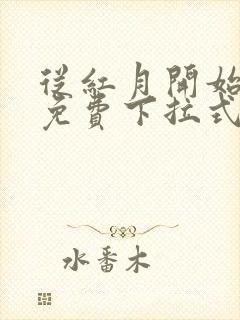 從紅月開始
免費下拉式
水番木